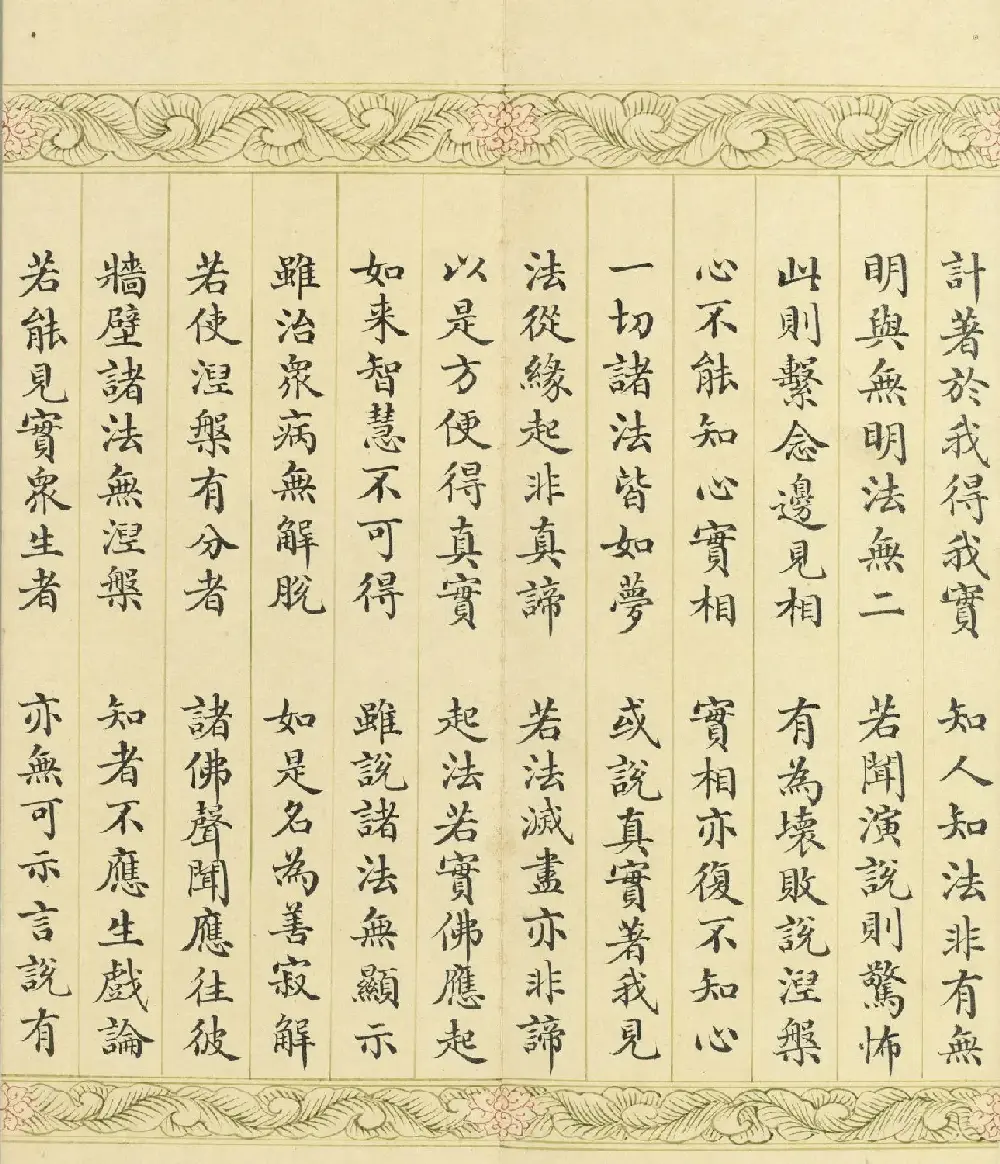 計著於我得我實　知人知法非有無
明與無明法無二　若聞演說則驚怖
此則繫念邊見相　有為壞敗說涅槃
心不能知心實相　實相亦復不知心
一切諸法皆如夢　或說真實著我見
法從緣起非真諦　若法滅盡亦非諦
以是方便得真實　起法若實佛應起
如来智慧不可得　雖說諸法無顯示
雖治眾病無解脫　如是名為善寂解
若使涅槃有分者　諸佛聲聞應往彼
牆壁諸法無涅槃　知者不應生戲論
若能見實眾生者　亦無可示言說有